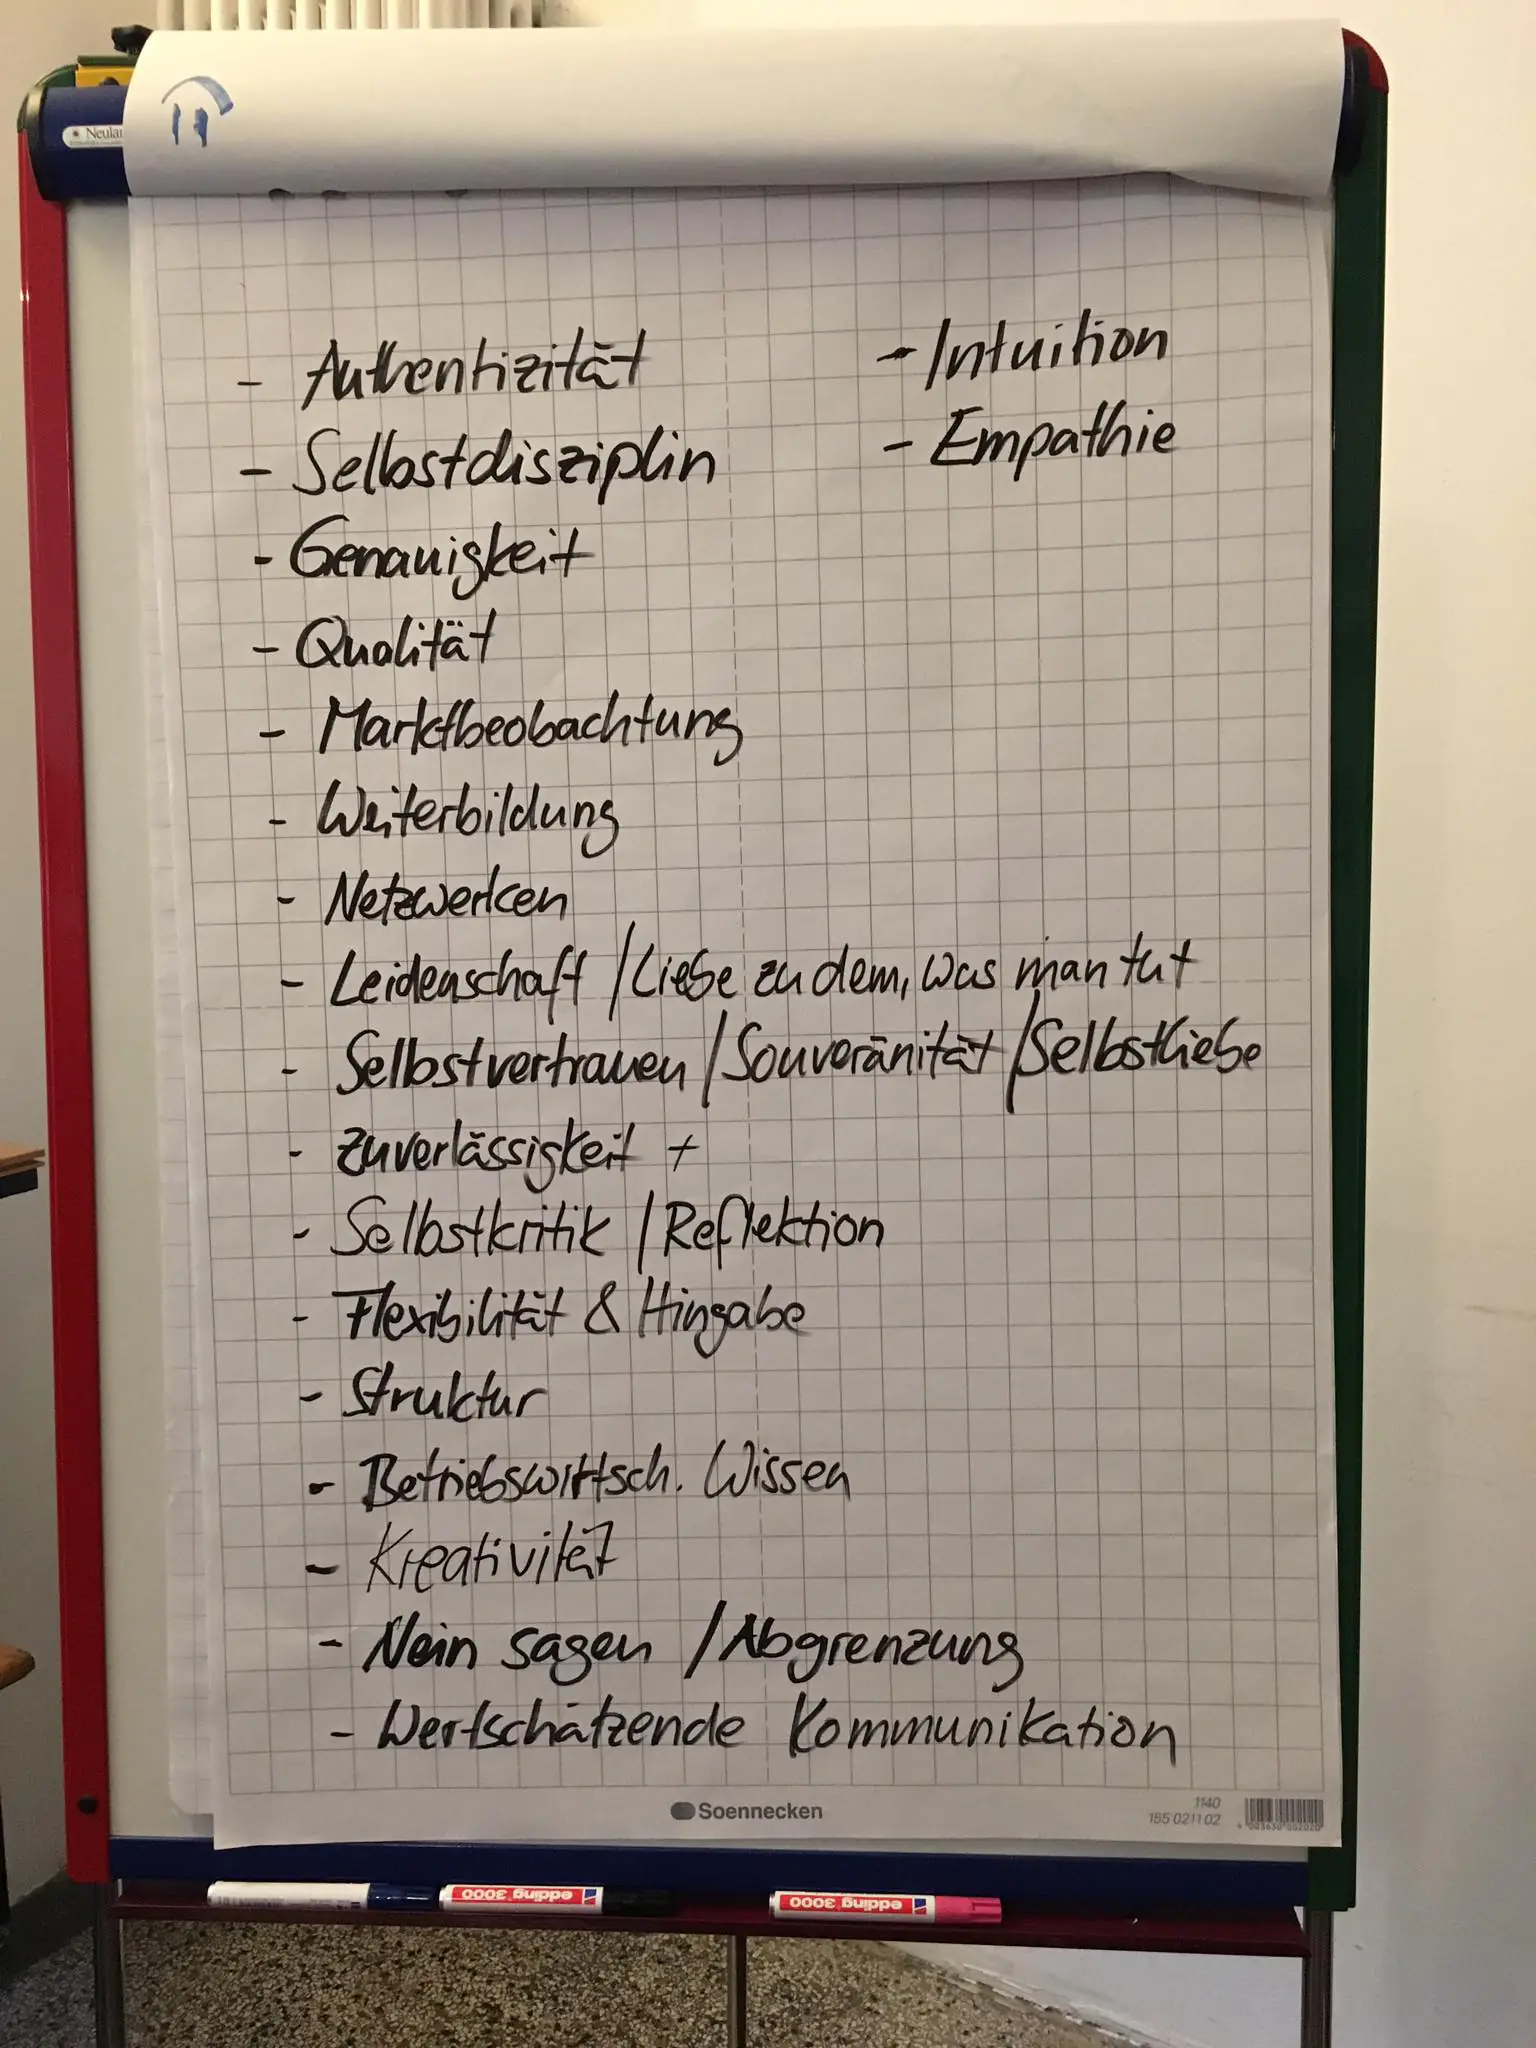 Neulan
- Authentizität
- Selbstdisziplin
- Genauigkeit
- Qualität
- Marktbeobachtung
- Weiterbildung
- Netzwerken
- Leidenschaft / Liebe zu dem, was man tut
- Selbstvertrauen / Souveränität / Selbstliebe
- Zuverlässigkeit +
- Selbstkritik / Reflektion
- Flexibilität & Hingabe
- Struktur
- Betriebswirtsch. Wissen
- Kreativität
- Nein sagen / Abgrenzung
- Wertschätzende Kommunikation
- Intuition
- Empathie
Soennecken
1140
155 0211 02
edding 3000
edding 3000